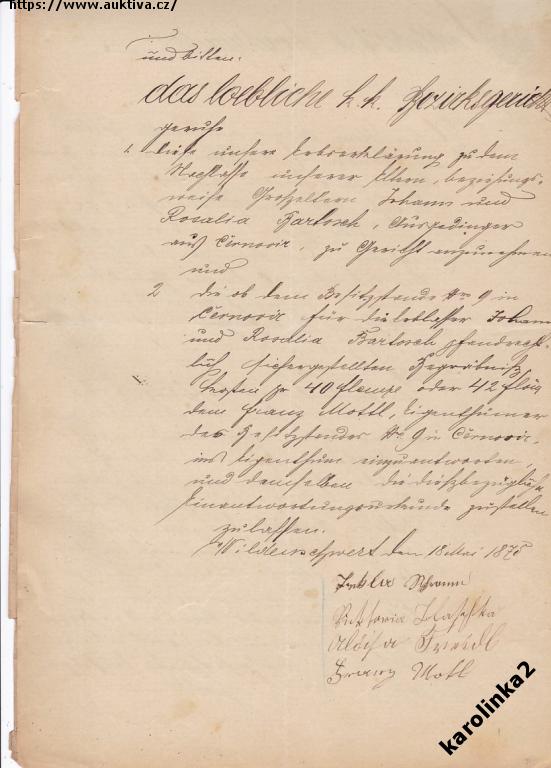 https://www.auktiva.cz/
und bitten:
das loebliche k. k. Bezirksgericht
geruhe
1. diese unsere Erbserklärung zu dem
Nachlasse unserer Eltern, beziehungs-
weise Großeltern Johann und
Rosalia Bartosch, Ausgedinger
aus Černovir, zu Gericht anzunehmen
und
2. die ob dem Besitzstande Nro 9 in
Černovir für die Erblasser Johann
und Rosalia Bartosch pfandrecht-
lich sichergestellten Begräbniß-
kosten pr 40 oder 42
dem Franz Mottl, Eigenthümer
des Besitzstandes Nro 9 in Černovir,
ins Eigenthum einzuantworten,
und demselben die dießbezügliche
Einantwortungsurkunde zustellen
zu lassen.
Wildenschwert den 18 Mai 1875
Thekla
Viktoria
Aloisia
Franz Motl
karolinka2